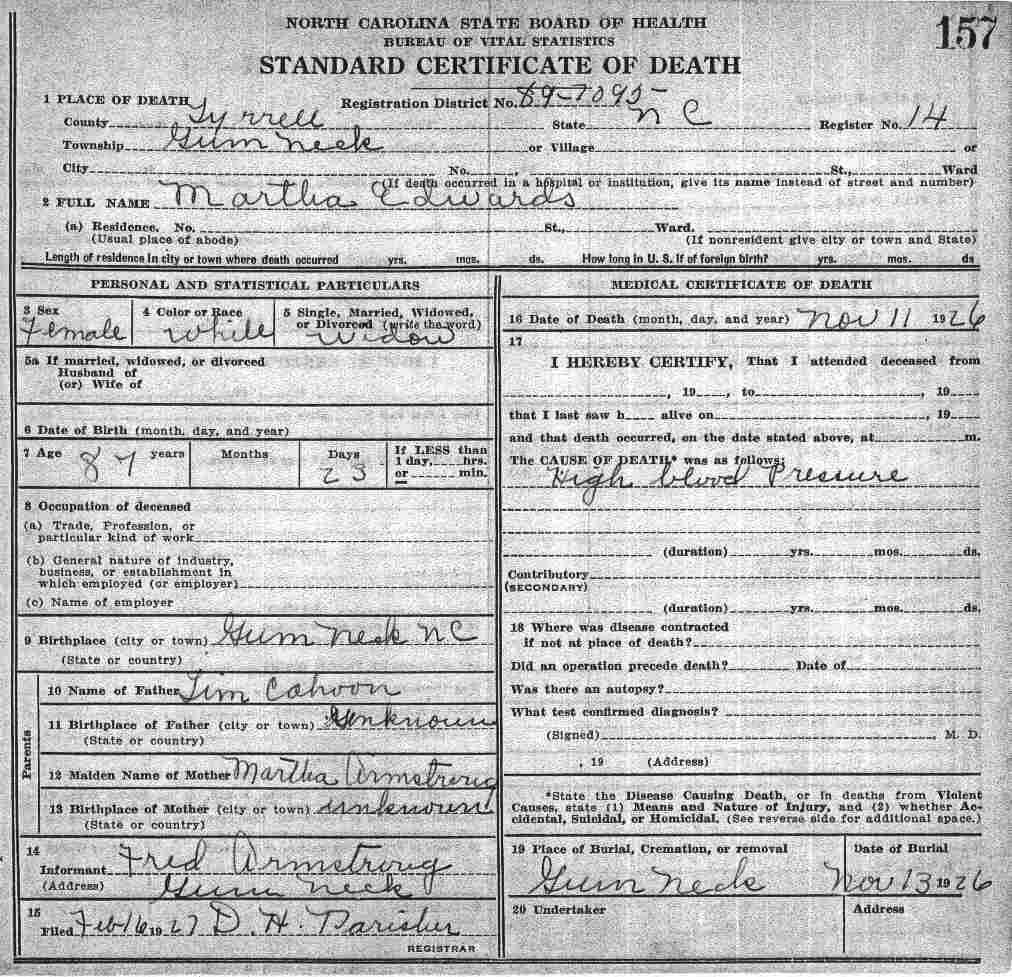 NORTH CAROLINA STATE BOARD OF HEALTH
157
BUREAU OF VITAL STATISTICS
STANDARD CERTIFICATE OF DEATH
1 PLACE OF DEATH Registration District No. 89-7095-
County Tyrrell State N C Register No. 14
Township Gum Neck or Village or
City No. , St., Ward
(If death occurred in a hospital or institution, give its name instead of street and number)
2 FULL NAME Martha Edwards
(a) Residence. No. St., Ward.
(Usual place of abode) (If nonresident give city or town and State)
Length of residence in city or town where death occurred yrs. mos. ds. How long in U. S. if of foreign birth? yrs. mos. ds
PERSONAL AND STATISTICAL PARTICULARS
3 Sex 4 Color or Race 5 Single, Married, Widowed,
or Divorced (write the word)
Female White Widow
5a If married, widowed, or divorced
Husband of
(or) Wife of
6 Date of Birth (month, day, and year)
7 Age 87 years Months Days 23 If LESS than
1 day, hrs.
or min.
8 Occupation of deceased
(a) Trade, Profession, or
particular kind of work
(b) General nature of industry,
business, or establishment in
which employed (or employer)
(c) Name of employer
9 Birthplace (city or town) Gum Neck NC
(State or country)
Parents
10 Name of Father Jim Cahoon
11 Birthplace of Father (city or town) unknown
(State or country)
12 Maiden Name of Mother Martha Armstrong
13 Birthplace of Mother (city or town) unknown
(State or country)
14
Informant Fred Armstrong
(Address) Gum Neck
15
Filed Feb 16 1927 D. H. Parisher
REGISTRAR
MEDICAL CERTIFICATE OF DEATH
16 Date of Death (month, day, and year) Nov 11 1926
17
I HEREBY CERTIFY, That I attended deceased from
, 19 , to , 19
that I last saw h alive on , 19
and that death occurred, on the date stated above, at m.
The CAUSE OF DEATH* was as follows:
High blood Pressure
(duration) yrs. mos. ds.
Contributory
(SECONDARY)
(duration) yrs. mos. ds.
18 Where was disease contracted
if not at place of death?
Did an operation precede death? Date of
Was there an autopsy?
What test confirmed diagnosis?
(Signed) M. D.
, 19 (Address)
*State the Disease Causing Death, or in deaths from Violent
Causes, state (1) Means and Nature of Injury, and (2) whether Ac-
cidental, Suicidal, or Homicidal. (See reverse side for additional space.)
19 Place of Burial, Cremation, or removal Date of Burial
Gum Neck Nov 13 1926
20 Undertaker Address